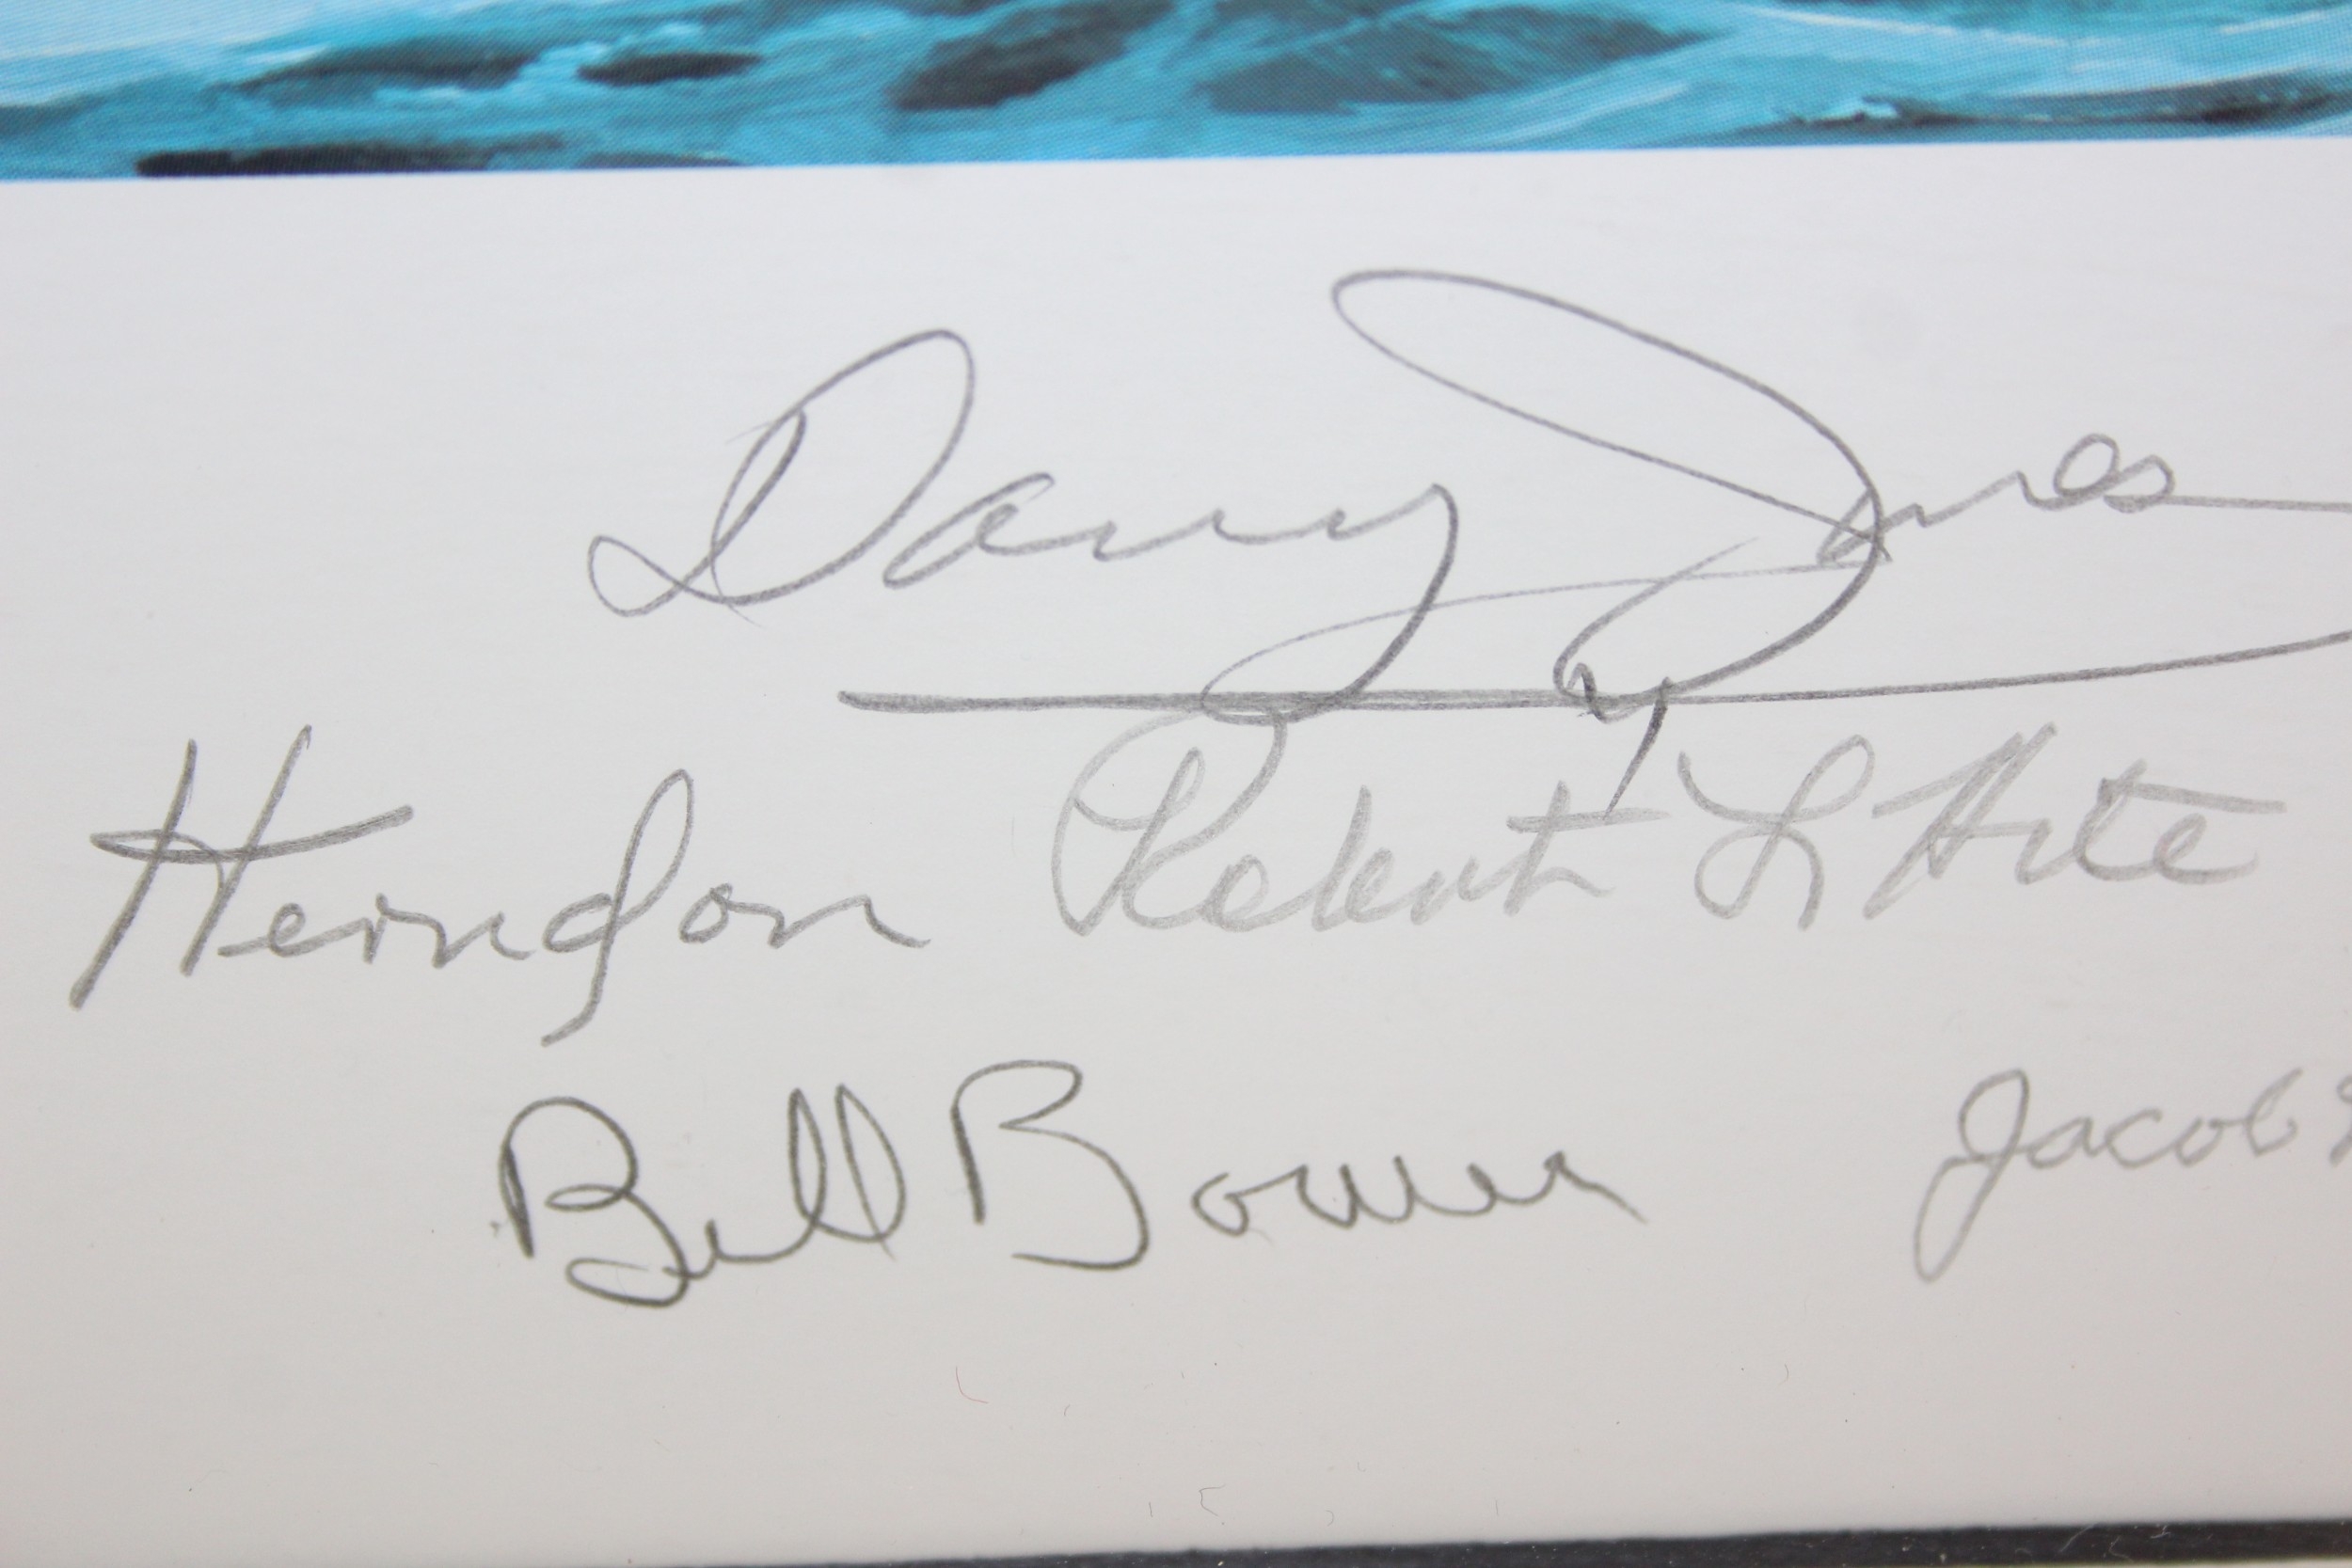 Davy Jones
Herndon Robert L Hite
Bill Bower Jacob